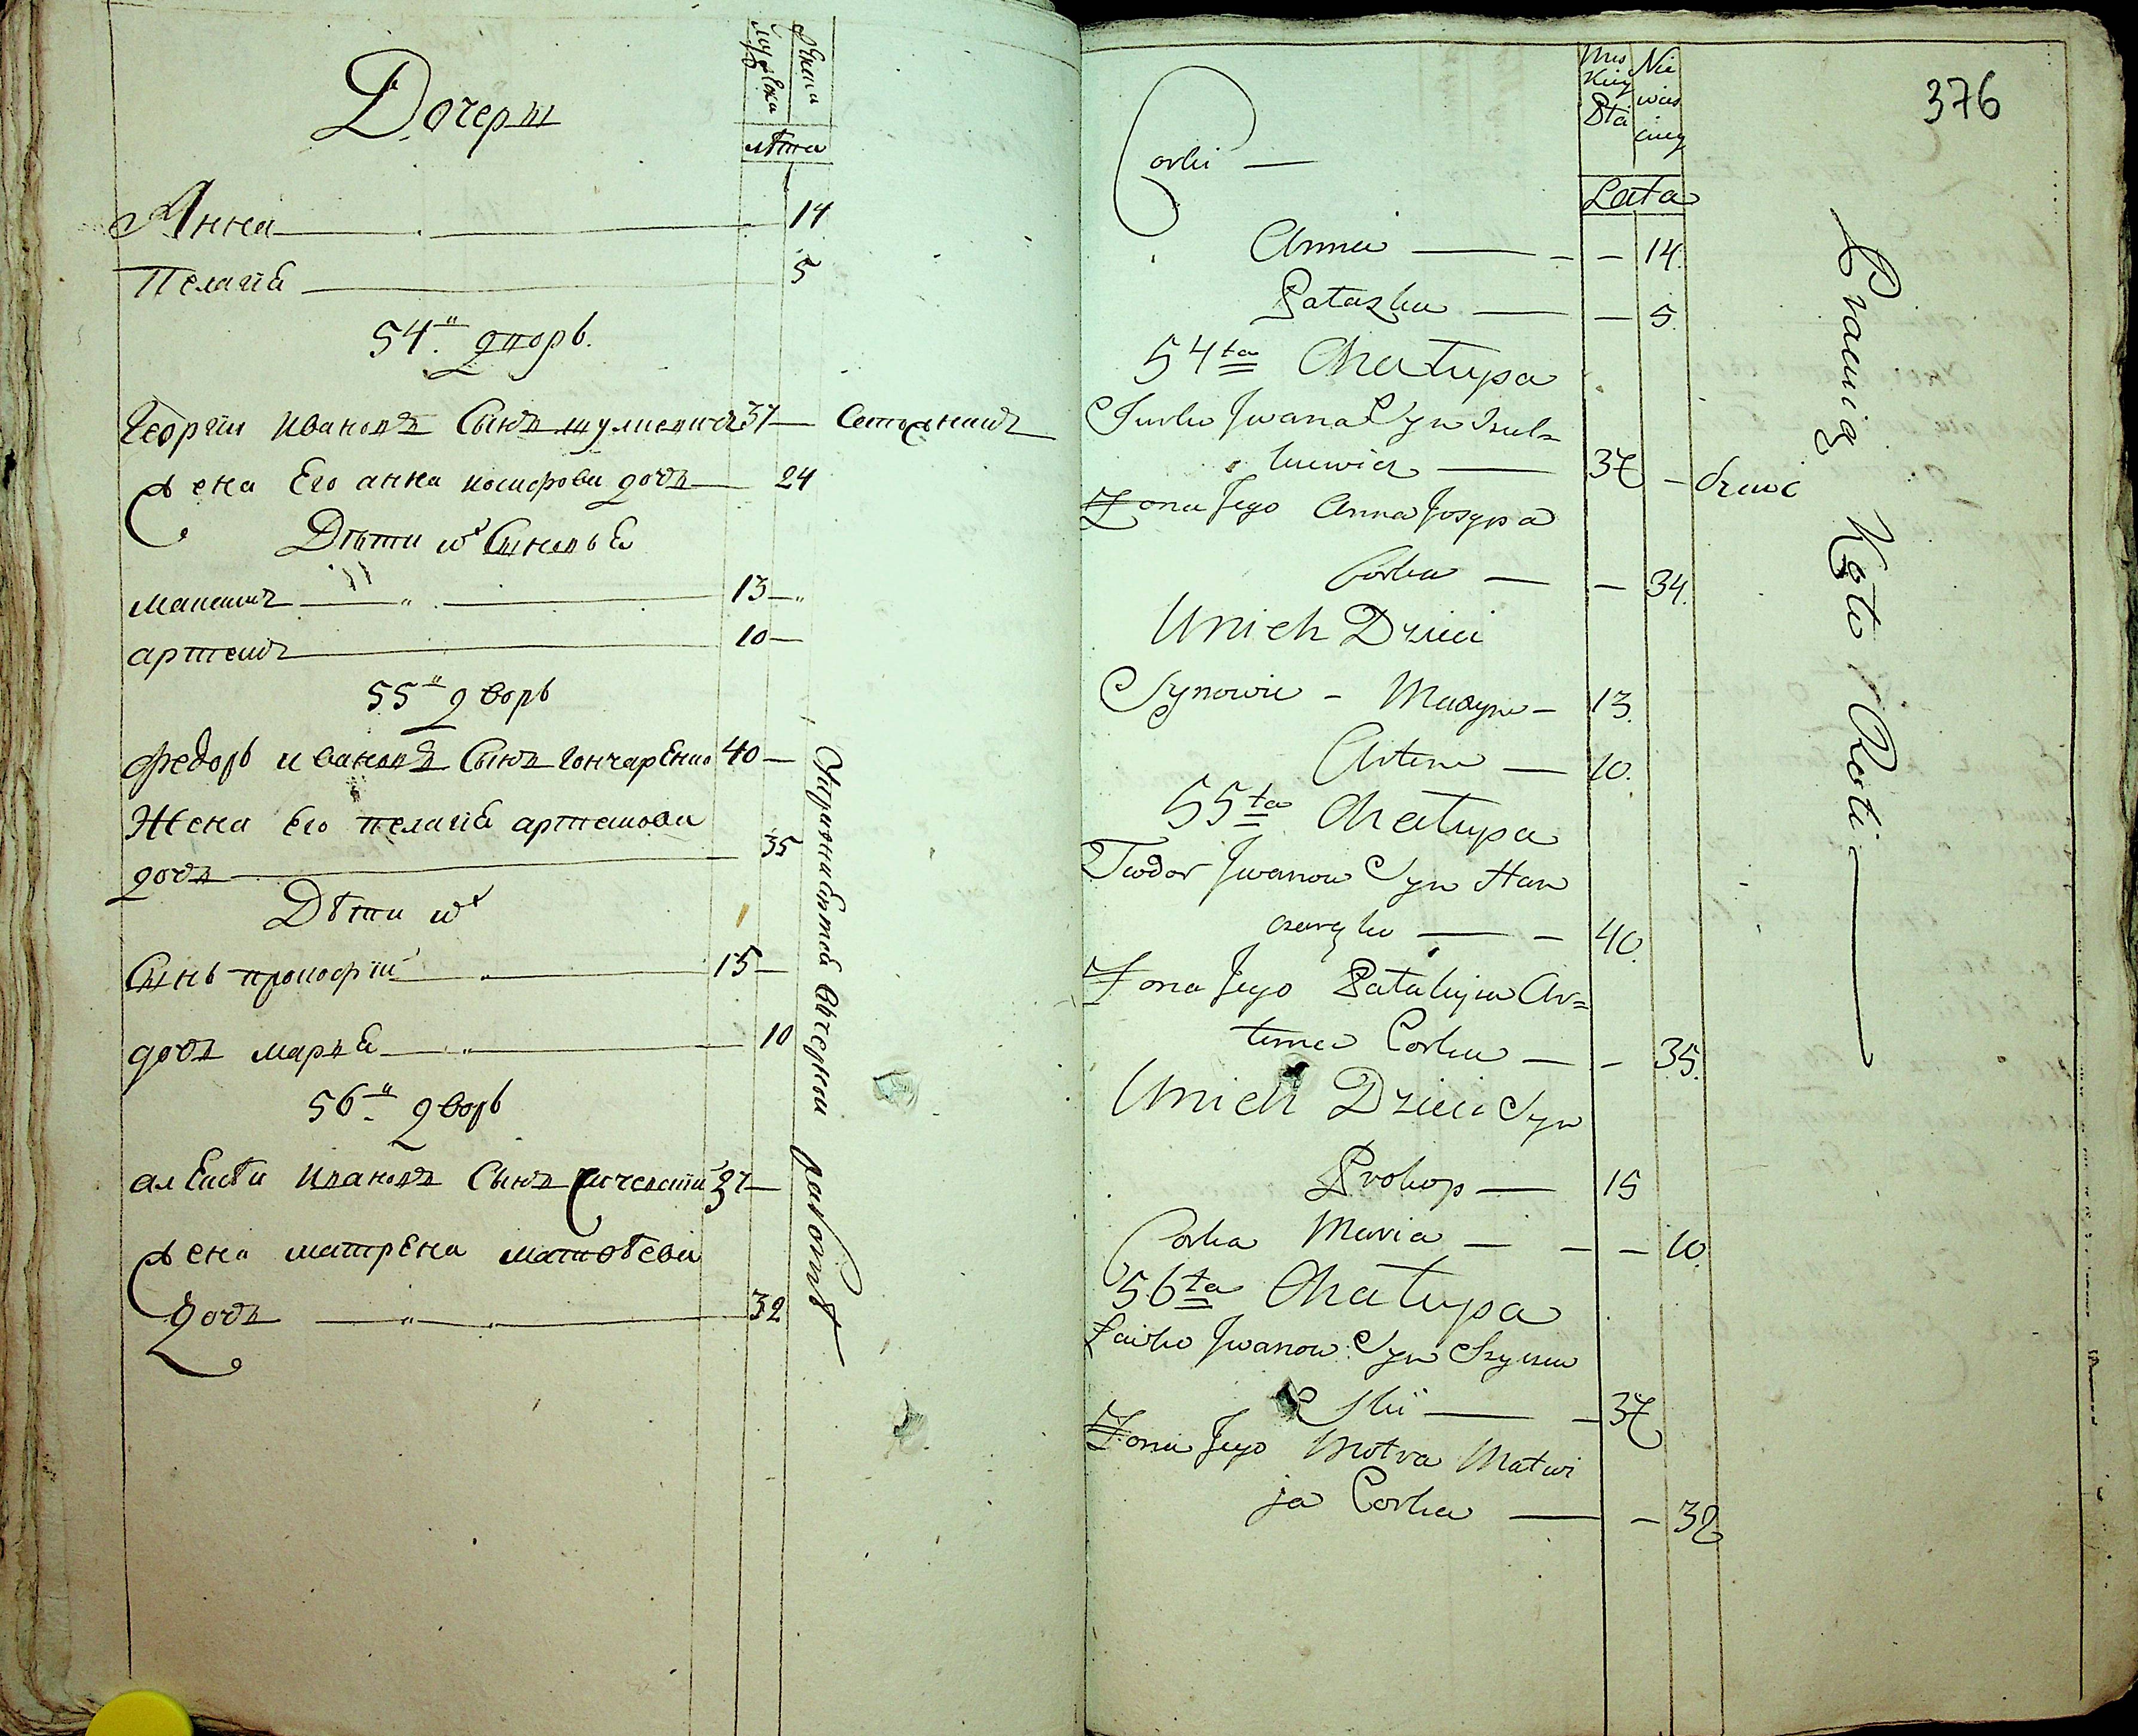 Дочери
мужеска
женска
лѣта
Анна 14
Пелагiя 5
54й дворъ.
Георгiи Ивановъ Сынъ шулкевичъ 37
жена Его анна иосифова дочь 24
Дѣти их Сыновья
максимъ 13
артемъ 10
55й дворъ
Федоръ ивановъ Сынъ гончаренко 40
Жена Его пелагiя артемова
дочь 35
Дѣти их
Сынъ прокофiй 15
дочь марья 10
56й дворъ
алексѣи Ивановъ Сынъ 37
жена матрена матвѣева
дочь 32
работѣ
376
Mes Kiey Płci
Nie wies ciey
Lata
Corki
Anna 14.
Patazka 5.
54ta Chałupa
Jurko Jwana Syn Szul=
kiewicz 37
Żona Jego Anna Josypa
Corka 34.
U nich Dzieci
Synowie - Maxym 13.
Artem 10.
55ta Chałupa
Teodor Jwanow Syn Han
czaręko 40.
Żona Jego Patahija Ar=
tema Corka 35.
U nich Dzieci Syn
Prokop 15
Corka Maria 10.
56ta Chałupa
Jwanow Syn Szycze
Skii 37
Żona Jego Motra Matwi
ja Corka 32
Pracuią Koło Roli